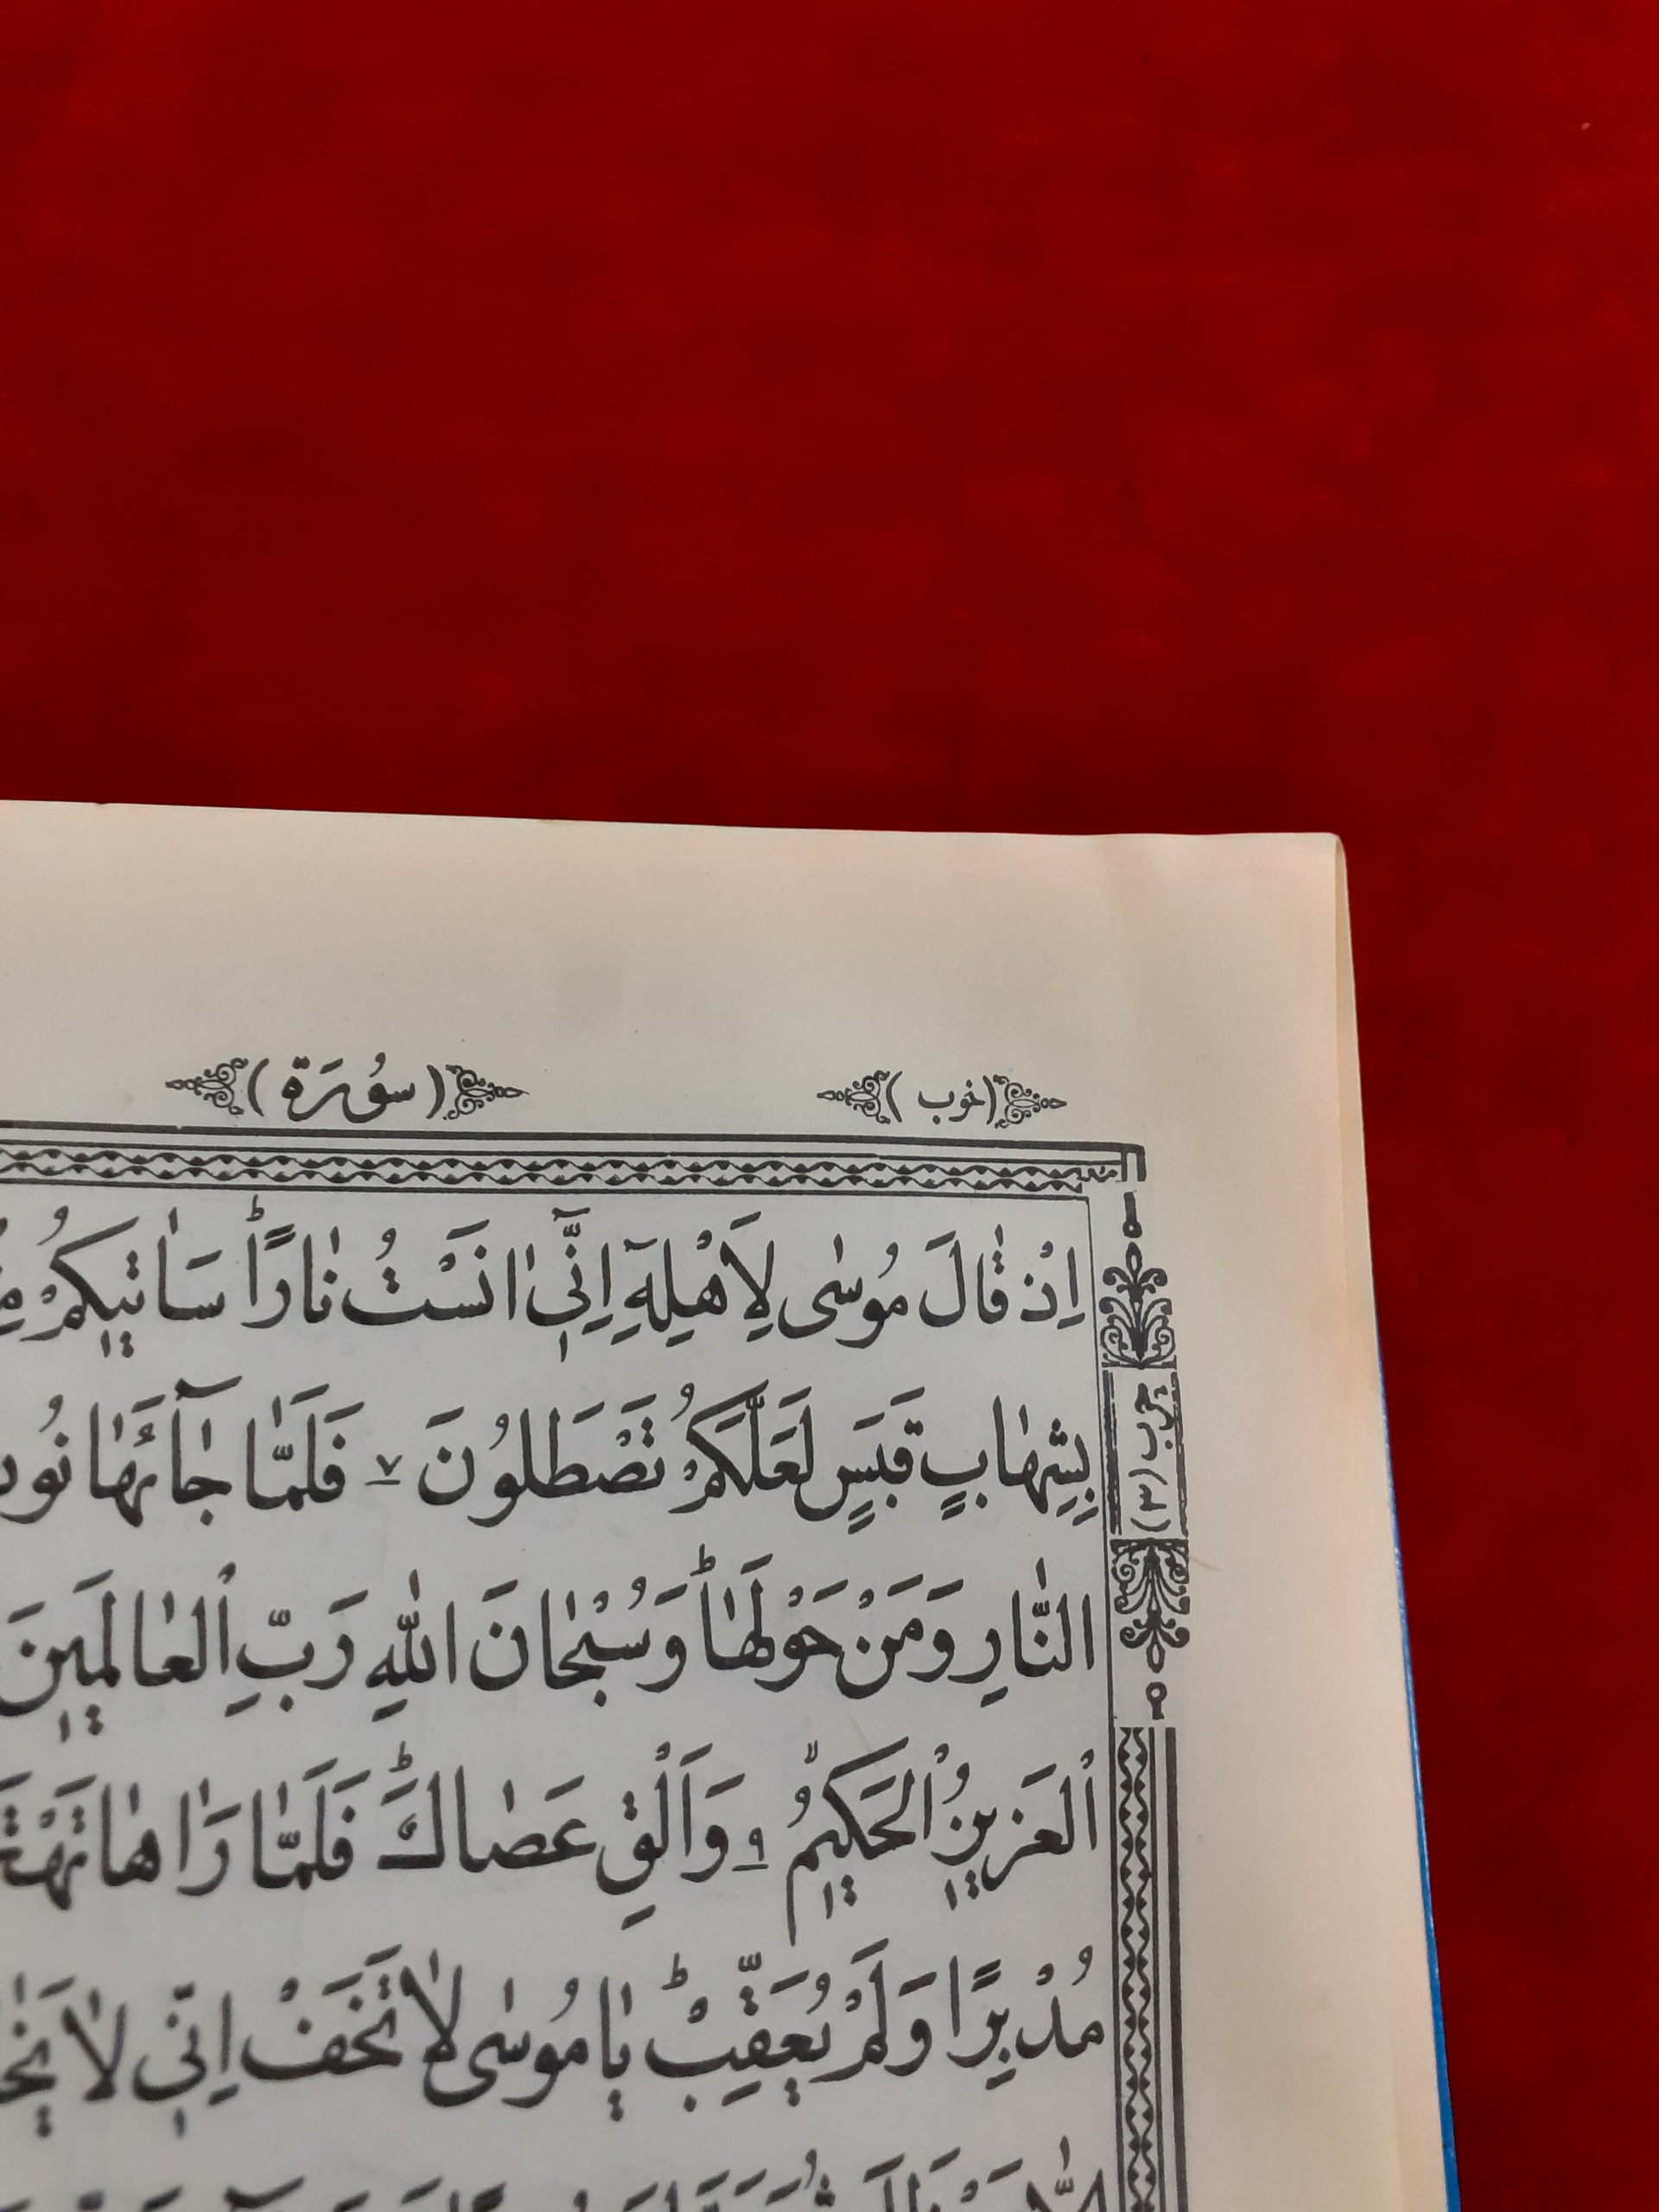 (خوب) (سُورَة)
اِذْ قٰالَ مُوسٰى لِاَهْلِهِٓ اِنِّىٓ اٰنَسْتُ نٰاراًؕ سَاٰتٖيكُمْ
بِشِهٰابٍ قَبَسٍ لَعَلَّكُمْ تَصْطَلُونَ ٧ فَلَمّٰا جٰٓائَهٰا
النّٰارِ وَمَنْ حَوْلَهٰاؕ وَسُبْحٰانَ اللّٰهِ رَبِّ الْعٰالَمٖينَ
الْعَزٖيزُ الْحَكٖيمُ ٩ وَاَلْقِ عَصٰاكَؕ فَلَمّٰا رَاٰهٰا
مُدْبِرًا وَلَمْ يُعَقِّبْؕ يٰامُوسٰى لٰا تَخَفْ اِنّٖى لٰا
حزب (٣)